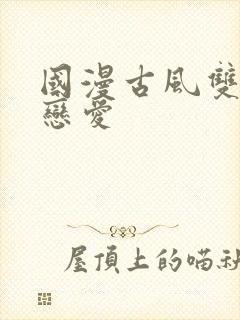 國漫古風雙
戀愛
屋頂上的喵社